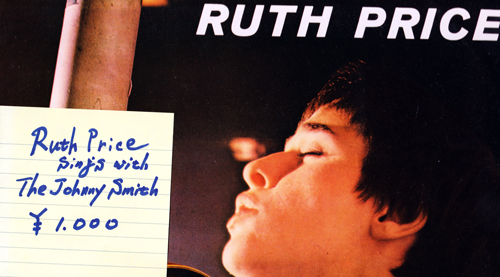 RUTH PRICE
Ruth Price
Sings with
The Johnny Smith
¥ 1.000